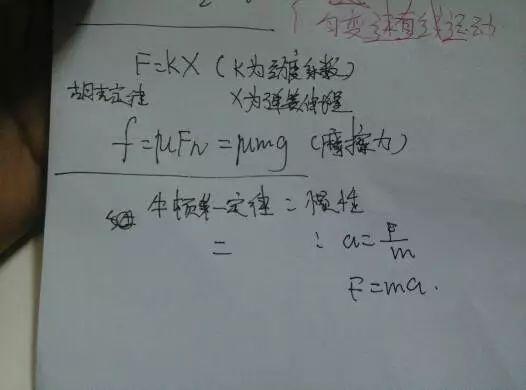 匀变速直线运动
F=kX (K为劲度系数)
胡克定律 X为弹簧伸缩
f=μFN=μmg (摩擦力)
牛顿第一定律：惯性
二：a=F/m
F=ma.